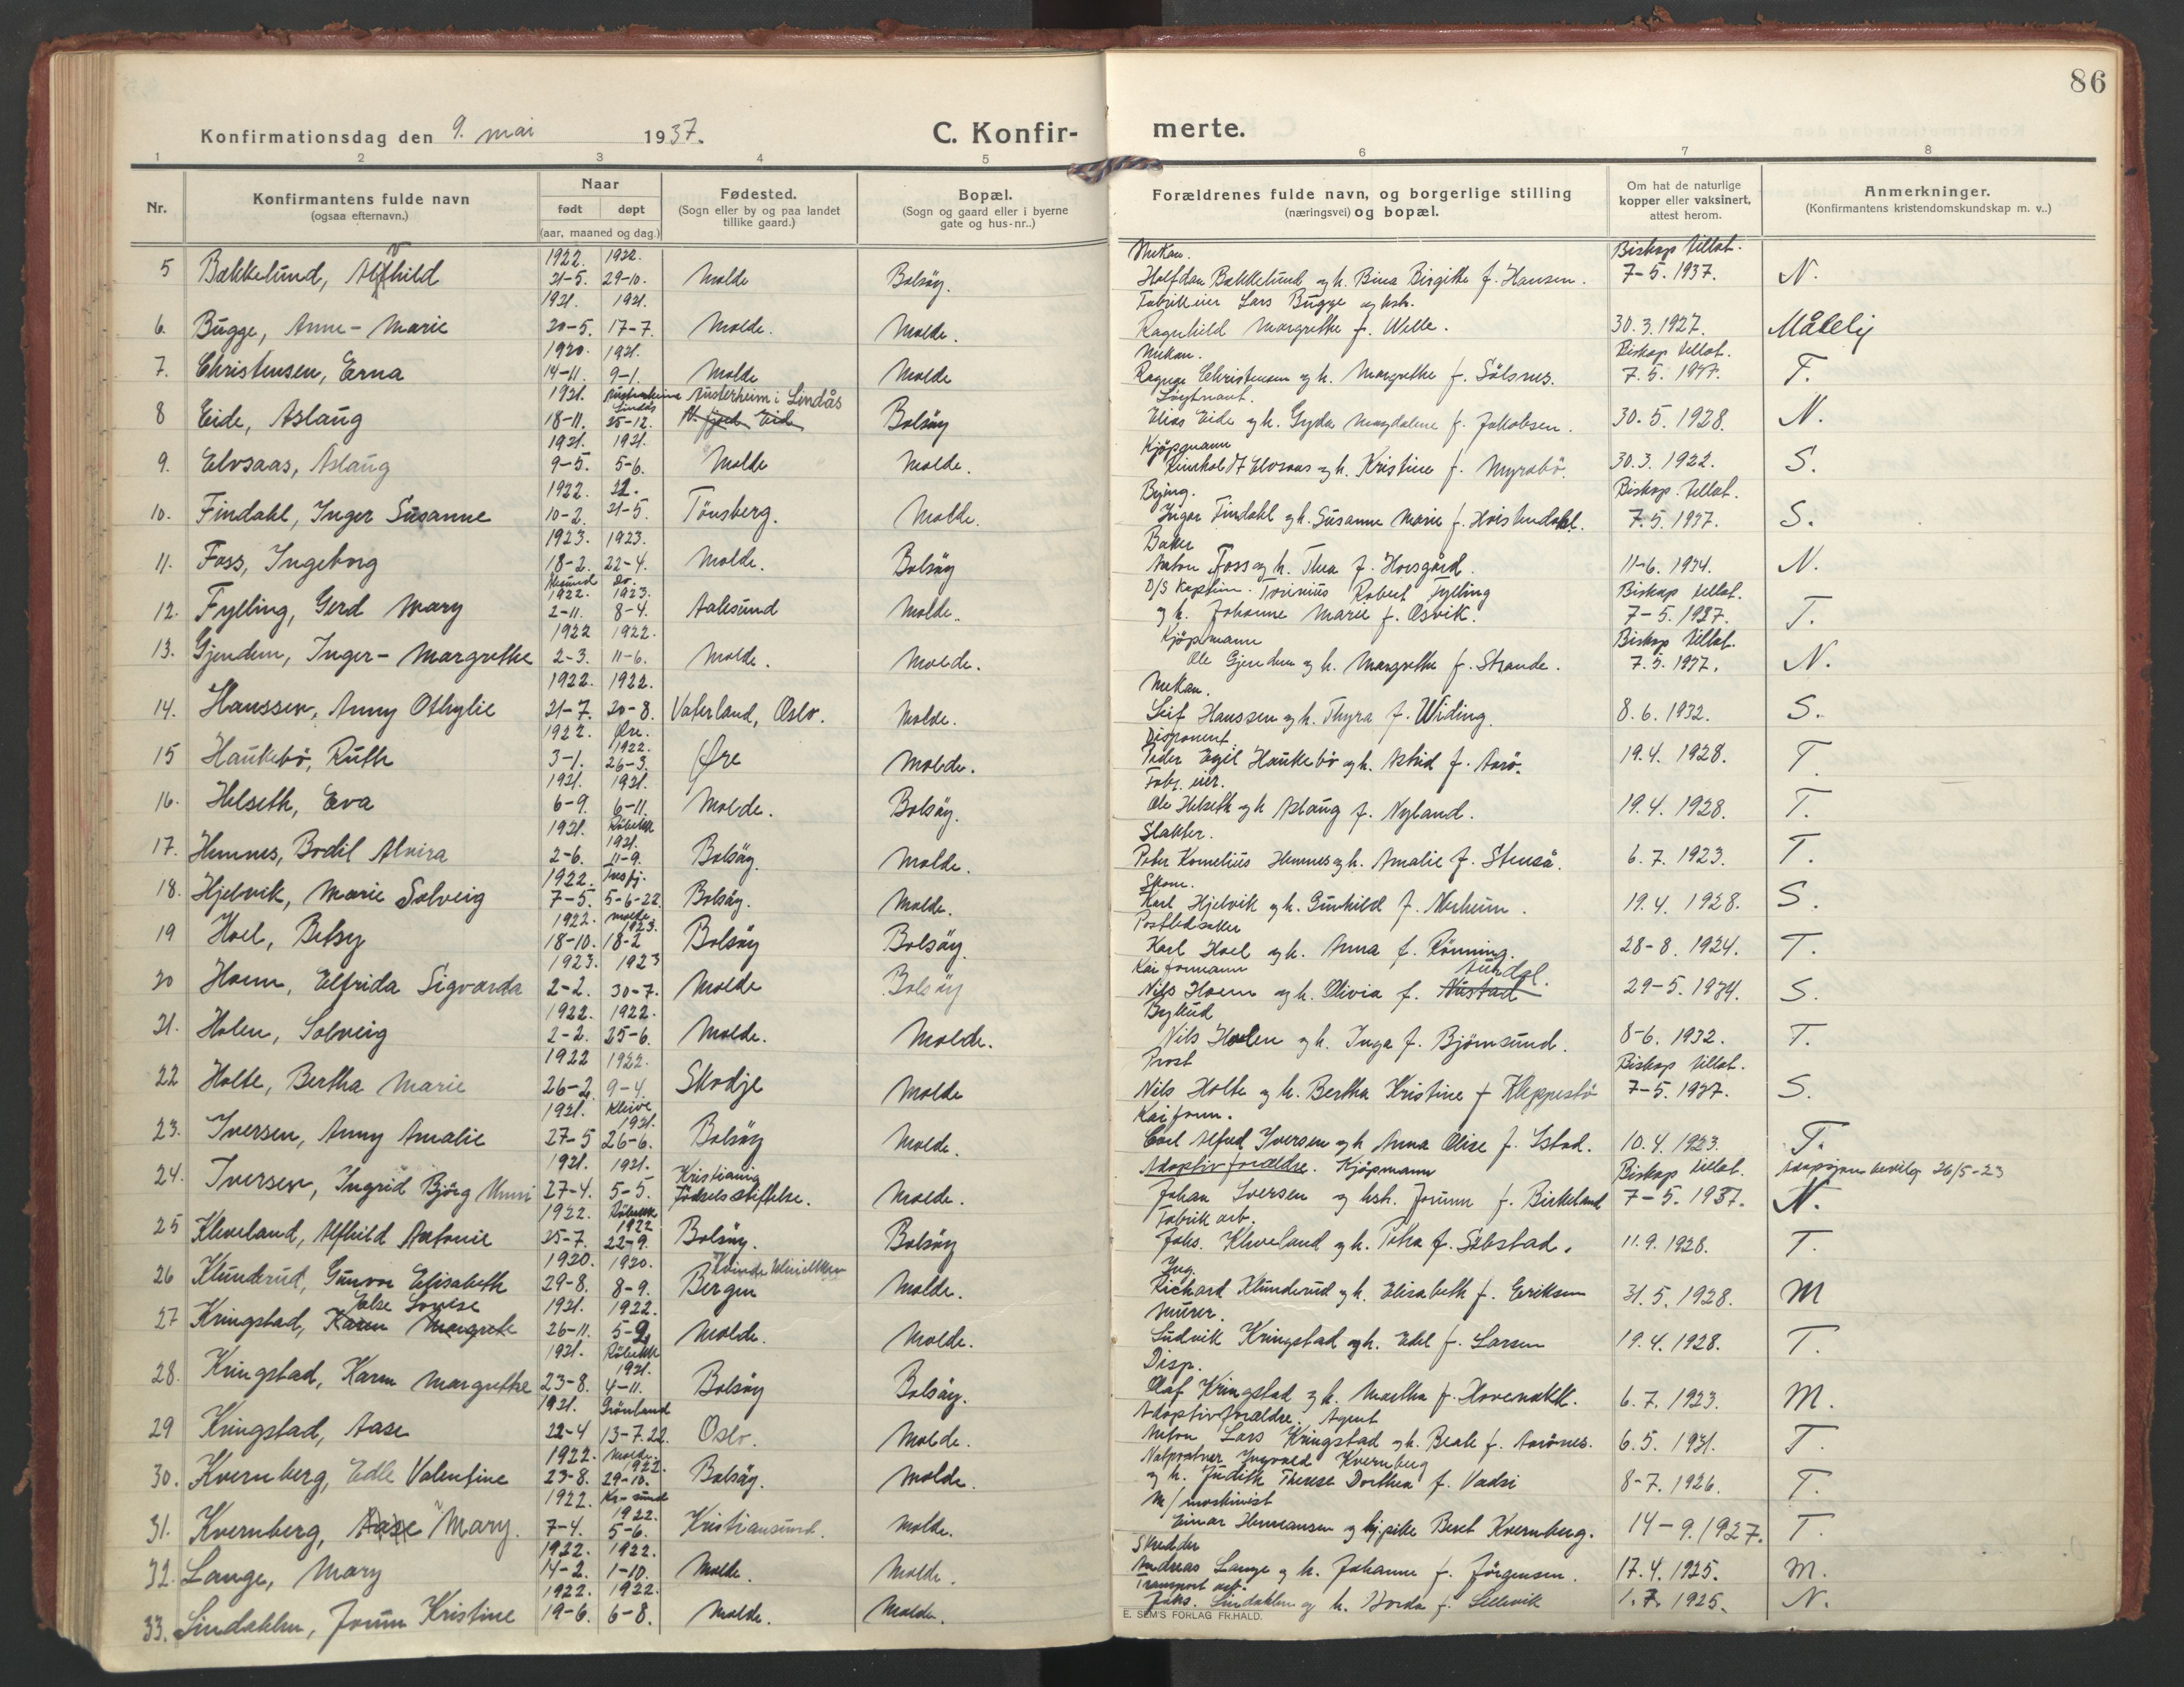 86
Konfirmationsdag den 9. mai 1937. C. Konfir- merte.
1 2 3 4 5 6 7 8
Nr. Konfirmantens fulde navn (ogsaa efternavn.) Naar født døpt (aar, maaned og dag.) Fødested. (Sogn eller by og paa landet tillike gaard.) Bopæl. (Sogn og gaard eller i byerne gate og hus-nr..) Forældrenes fulde navn, og borgerlige stilling (næringsvei) og bopæl. Om hat de naturlige kopper eller vaksinert, attest herom. Anmerkninger. (Konfirmantens kristendomskundskap m. v..)
1922. 1922. Mekan. Biskop tillat.
5 Bakkelund, Alfhild 21-5. 29-10. Molde Bolsøy. Halfdan Bakkelund og h. Bina Birgitte f. Hansen. 7-5. 1937. N.
1921. 1921. Fabrikeier Lars Bugge og hstr.
6. Bugge, Anne-Marie 20-5. 17-7. Molde. Molde. Ragnhild Margrethe f. Welle. 30.3.1927. Målelig
1920. 1921. Mekan. Biskop tillat.
7. Christensen, Erna 14-11. 9-1. Molde Molde Ragnar Christensen og h. Margrethe f. Sölsnes. 7.5. 1937. T.
1921. Austerheim i Lindås Løytnant.
8 Eide, Aslaug 18-11. 25-12. Eide Bolsøy Elias Eide og h. Gyda Magdalene f. Jakobsen. 30.5. 1928. N.
1921. 1921. Kjøpmann
9. Elvsaas, Aslaug 9-5. 5-6. Molde Molde. Elvsaas og h. Kristine f. Myrabö. 30.3. 1922. S.
1922. 22. Bying. Biskop. tillat.
10. Findahl, Inger Susanne 10-2. 21-5. Tönsberg. Molde. Ingar Findahl og h. Susanne Marie f. Hvistendahl. 7.5. 1937. S.
1923. 1923. Baker
11. Foss, Ingeborg 18-2. 22-4. Molde. Bolsøy Anton Foss og h. Thea f. Horsgård. 11-6. 1934. N.
Ålesund do. 1922. 1923. D/S Kaptein. Robert Fylling Biskop tillat.
12. Fylling, Gerd Mary 2-11. 8-4. Aalesund Molde. og h. Johanne Marie f. Osvik. 7-5. 1937. T.
1922 1922. Kjøpmann Biskop tillat.
13. Gjendem, Inger-Margrethe 2-3. 11-6. Molde. Molde. Ole Gjendem og h. Margrethe f. Strande. 7.5. 1937. N.
1922. 1922. Mekan.
14. Hanssen, Anny Othylie 21-7. 20-8. Vaterland, Oslo. Molde. Leif Hanssen og h. Thyra f. Widing. 8.6. 1932. S.
1922. Øre. 1922. Disponent
15 Haukebö, Ruth 3-1. 26-3. Øre Molde. Peder Egil Haukebö og h. Astrid f. Aarö. 19.4. 1928. T
1921. 1921. Fabr. eier.
16. Helseth, Eva 6-9. 6-11. Molde. Bolsøy. Ole Helseth og h Aslaug f. Nyland. 19.4. 1928. T.
1921. Röbekk 1921. Slakter.
17. Hemnes, Bodil Alvira 2-6. 11-9. Bolsøy. Molde. Peter Kornelius Hemnes og h. Amalie f. Stenså. 6.7. 1923. T.
1922. Skom.
18. Hjelvik, Marie Solveig 7-5. 5-6-22. Bolsøy. Molde. Karl Hjelvik og h. Gunhild f. Nerheim. 19.4. 1928. S.
1922. Molde. 1923. Postbedsøker
19 Hoel, Betsy 18-10. 18-2 Bolsøy Bolsøy. Karl Hoel og h. Anna f. Rönning. 28-8. 1924. T.
1923. 1923 Kaiformann Aundal.
20 Hoem, Elfrida Sigvarda 2-2. 30-7. Molde Bolsøy Nils Hoem og h. Olivia f. Nustad 29-5. 1934. S.
1922. 1922. Bybud
21. Holen, Solveig 2-2. 25-6. Molde. Molde. Nils Holen og h. Inga f. Björnsund. 8-6. 1932. T.
1922 1922. Prost Biskop tillat.
22 Holte, Bertha Marie 26-2 9-4. Skodje Molde Nils Holte og h. Bertha Kristine f Kleppestö 7-5. 1937. S.
1921. Kleive 1921. Kaiform.
23. Iversen, Anny Amalie 27-5 26-6. Bolsøy Molde. Carl Alfred Iversen og h Anna Olise f. Istad. 10.4. 1923. T.
1921. 1921. Kristiania Adoptivforældre. Kjøpmann Biskop tillat. Adopsjons bevilg 26/5-23
24. Iversen, Ingrid Björg Unni 27-4. 5-5. Födselsstiftelse. Molde. Johan Iversen og hstr. Jorunn f. Birkeland 7-5. 1937. N.
1922. Röbekk 1922 Fabrik arb.
25 Kleveland, Alfhild Antonie 25-7. 22-9. Bolsøy. Bolsøy Johs. Kleveland og h. Petra f. Sæbstad. 11.9. 1928. T.
1920. 1920. Kvindeklinikken Ing.
26 Klunderud, Gunvor Elisabeth 29-8. 8-9. Bergen Molde. Richard Klunderud og h. Elisabeth f. Eriksen 31.5. 1928. M
Else Lovise 1921. 1922. Murer.
27 Kringstad, Karen Margrete 26-11. 5-2 Molde. Molde. Ludvik Kringstad og h. Edel f. Larsen 19.4. 1928. T.
1921. Röbekk 1921. Disp.
28. Kringstad, Karen Margrethe 23-8. 4-11. Bolsøy Bolsøy. Olaf Kringstad og h. Martha f. Hovenakk. 6.7. 1923. M.
1921. Grönland Adoptivforældre. Agent
29 Kringstad, Aase 22-4 13-7.22. Oslo. Molde. Anton Lars Kringstad og h. Beate f. Aarönes. 6.5. 1931. T.
1922. Molde. 1922. Ingvald Kvernberg
30. Kvernberg, Edle Valentine 23-8. 29-10. Bolsøy. Molde. og h. Judith Therese Dorthea f. Vadsi 8-7. 1926. T.
1922. Kr-sund 1922. M/maskinist
31. Kvernberg, Aase Mary. 7-4. 5-6. Kristiansund. Molde. Einar Hermansen og pike Beret Kvernberg. 14-9.1927. T.
1922. 1922. Skredder
32. Lange, Mary 14-2. 1-10. Molde. Molde. Andreas Lange og h. Johanne f. Jörgensen. 17.4. 1925. M.
1922. 1922. Transport arb.
33. Lindahlen, Jorun Kristine 19-6. 6-8. Molde. Molde. Johs. Lindahlen og h. Horda f. Sellevik 1.7. 1925. N.
E. SEM'S FORLAG FR.HALD.